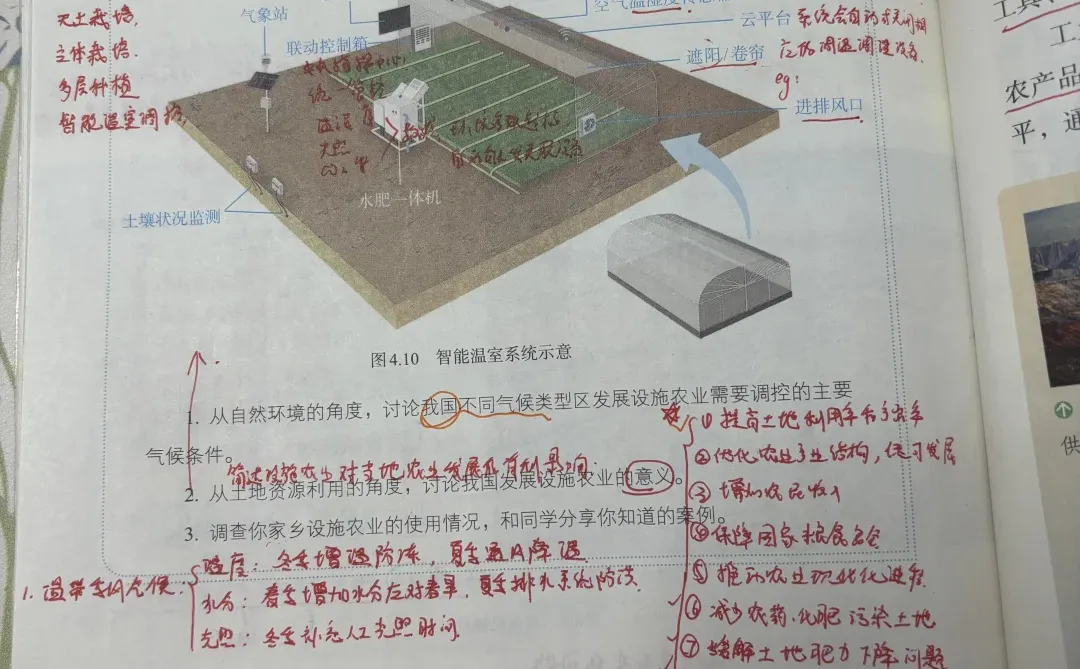 无土栽培.
立体栽培.
多层种植
智能温室调控.
气象站
联动控制箱
空气温湿度传感器
云平台
系统会自动或关闭相
应的调温调湿设备.
遮阳/卷帘
eg:
进排风口
水肥一体机
土壤状况监测
工具
工
农产品
平，通
供
图4.10 智能温室系统示意
1. 从自然环境的角度，讨论我国不同气候类型区发展设施农业需要调控的主要
气候条件。
简述设施农业对当地农业发展的有利影响.
2. 从土地资源利用的角度，讨论我国发展设施农业的意义。
3. 调查你家乡设施农业的使用情况，和同学分享你知道的案例。
①提高土地利用率和产率
②优化农业产业结构，促可发展
③增加农民收入
④保障国家粮食安全
⑤推动农业现代化进程
⑥减少农药、化肥污染土地
⑦缓解土地肥力下降问题
1. 温带季风气候.
温度：冬季增温防冻，夏季通风降温
水分：春季增加水分应对春旱，夏季排水系统防涝.
光照：冬季补充人工光照时间.